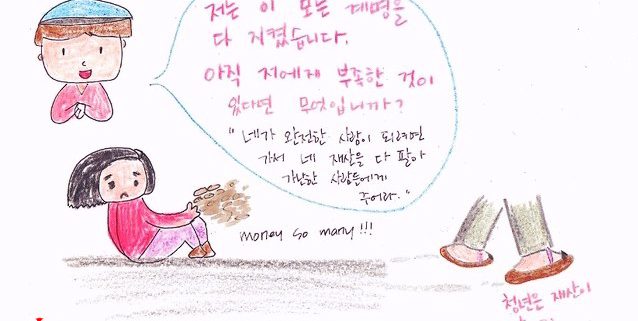 저는 이 모든 계명을
다 지켰습니다.
아직 저에게 부족한 것이
있다면 무엇입니까?
"네가 완전한 사람이 되려면
가서 네 재산을 다 팔아
가난한 사람들에게
주어라."
money so many!!!
청년은 재산이